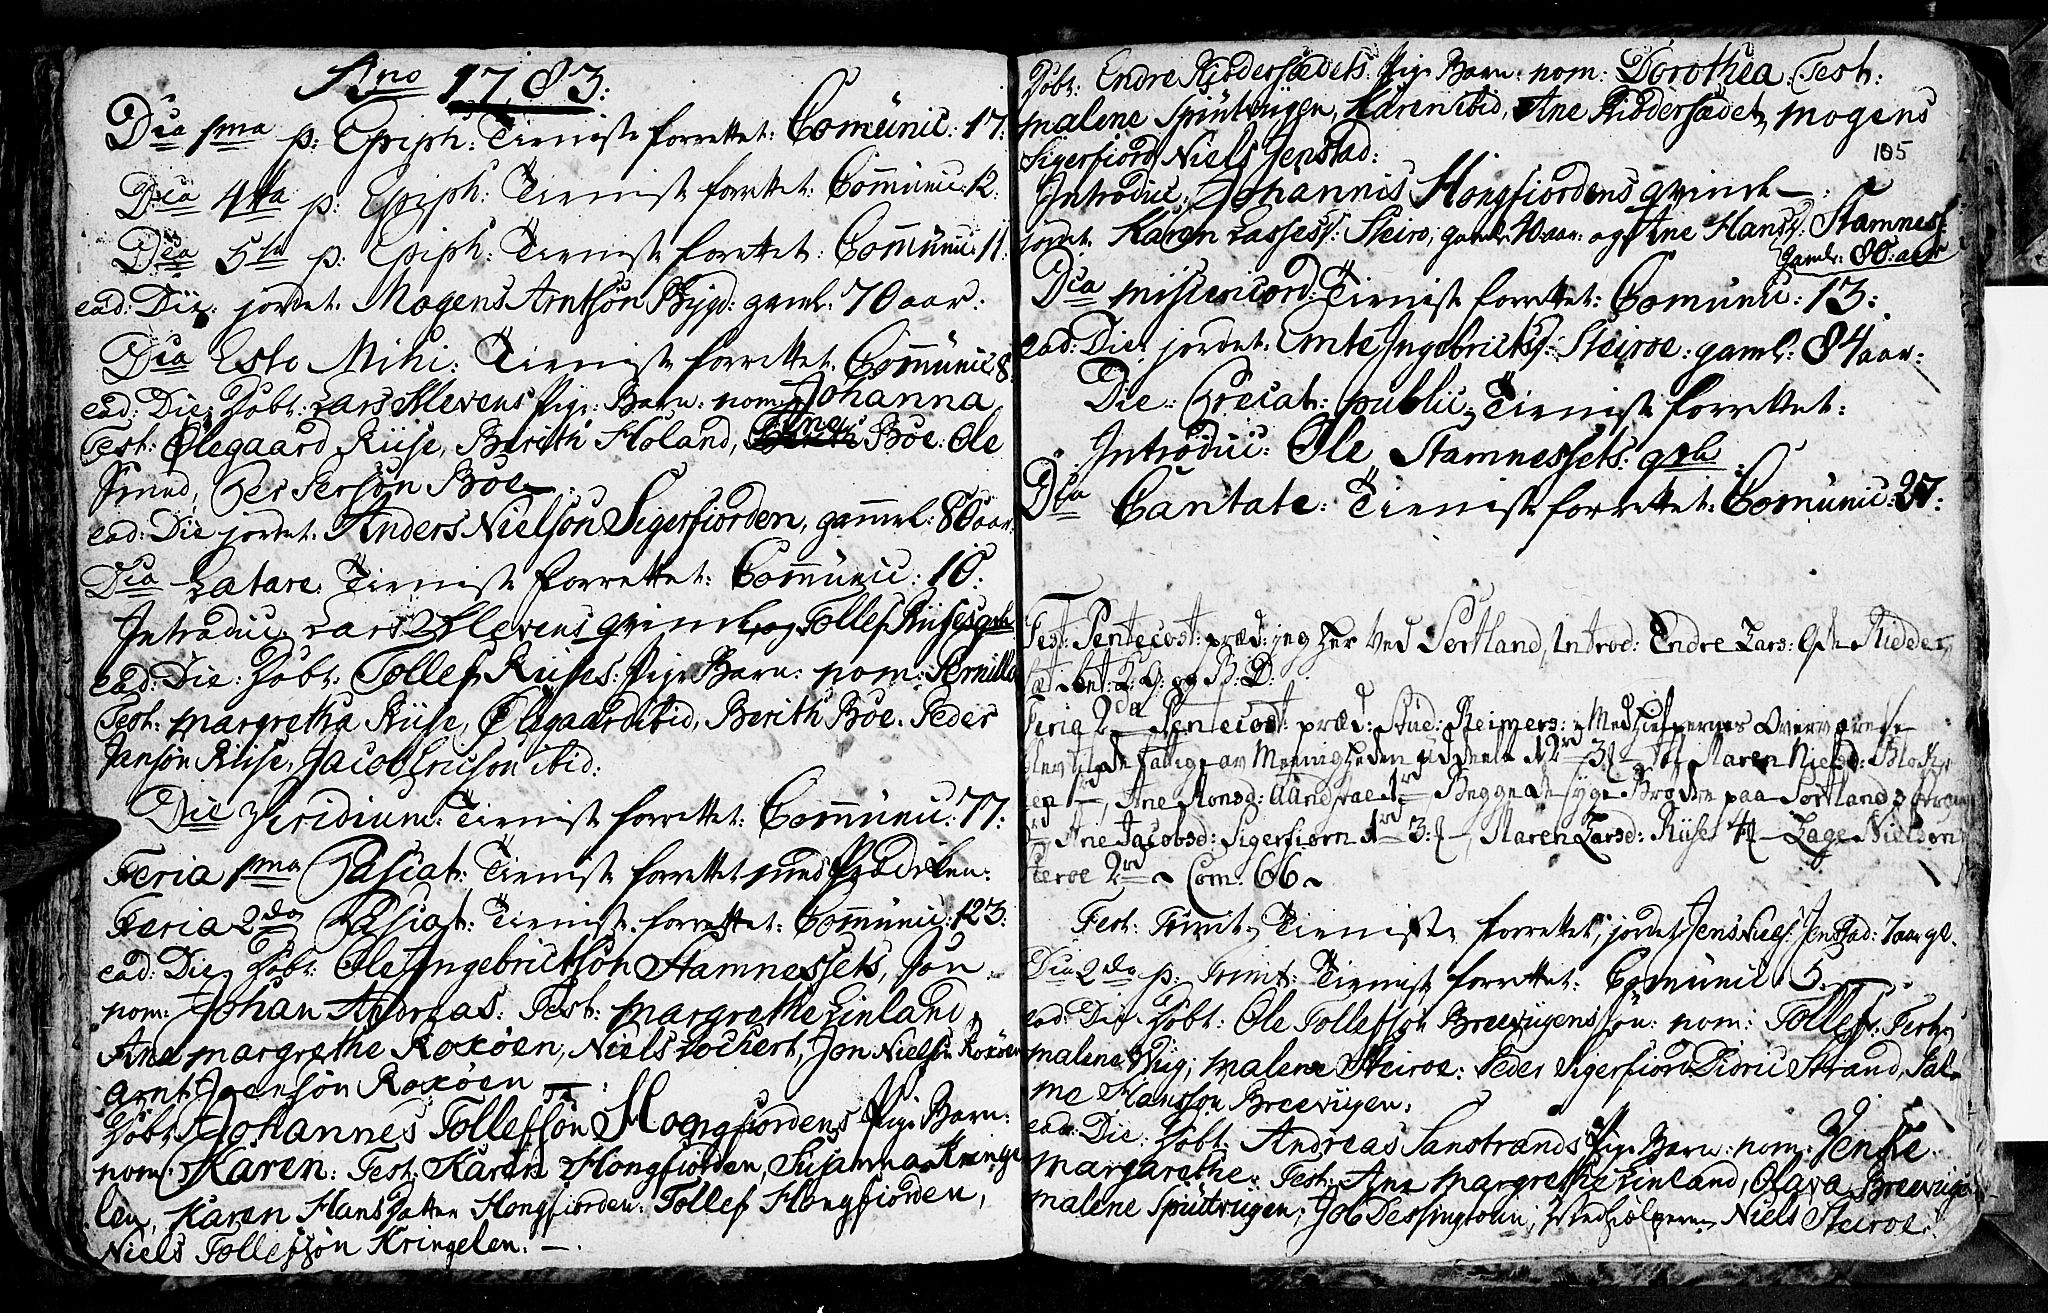 Ano 1783:
Dca 1ma p: Epiph: Tieniste forrettet: Comunic: 17:
Dca 4ta p: Epiph: Tieniste forrettet: Communic: 12.
Dca 5ta p: Epiph: Tieniste forettet: Communic: 11:
ead: Die: jordet: Mogens Arntsøn Bygd: gaml: 70 aar:
Dca Esto Mihi: Tieniste forrettet: Communic 8.
ead: Die, Døbt: Lars Klevens Pige: Barn: nom: Johanna
Test: Ølegaard Riise, Berith Holand, Ane Boe: Ole
Smed, Per Persøn Boe
ead: Die jordet: Anders Nielsøn Sigerfiorden, gammel: 80 aar:
Dca Lætare: Tieniste forrettet: Communic: 10:
Introduc: Lars Klevens qvinde, og Tollef Riises qde
ead: Die: Døbt: Tollef Riises: Pige Barn: nom: Pernille
Test: margretha Riise, Ølegaard ibid, Berith Boe. Peder
Jansøn Riise, Jacob Ericsøn ibid:
Die Viridium: Tieniste forrettet: Communic: 77:
Feria 1ma Pascat: Tieniste forrettet med Prædiken:
Feria 2da Pascat: Tieniste forrettet: Communic: 123:
ead: Die, Døbt: Ole Ingebrictsøn Stamnessets, Søn
nom: Johan Andreas: Test: margrethe Einland,
Ane margrethe Roxøen, Niels Lockert, Jon Nielsøn Roxøen
arnt Joensøn Roxøen
Døbt Johannes Tollefsøn Hongfiordens Pige Barn:
nom: Karen: Test: Karen Hongfiorden, Susanna Kringe
len, Karen Hans Datter Hongfiorden: Tollef Hongfiorden,
Niels Tollefsøn Kringelen.
Døbt: Endre Riddersædets: Pige Barn: nom: Dorothea: Test:
malene Spiutvigen, Karen ibid, Ane Riddersædet, Mogens
Sigerfiord, Niels Jenstad:
105
Introduc: Johannis Hongfiordens qvinde
jordet. Karen Lassesd: Steiro, gaml: 40 aar: og Ane Hansd: Stamness:
gaml: 80: aar
Dca misericord: Tieniste forrettet: Comunic: 13:
ead: Die: jordet: Emte Ingebrictsd: Steiroe: gaml: 84 aar:
Die: Precat: public: Tieniste forrettet:
Introduc: Ole Stamnessets: qde
Dca Cantate: Tieniste forrettet: Comunic: 27:
Fest: Pentecost: præd: jeg her ved Sortland, Introd: Endre Lars: Qde Ridder,
Feria 2da Pentecost: præd: Stud: Reimers: Med Hielpernes Overværelse
blev til de fattige av Meenigheden uddeelt 12rd 3 til Maren Nielsd:
Ane Monsd: 1rd, Begge de syge Brødre paa Sortland
Ane Jacobsd: Sigerfiorn 1rd 3, Maren Larsd: Riise 4 Lage Nielsøn
Steroe 2rd Com: 66
Fest: Trinit: Tieniste forrettet, jordet Jens Niels: Jenstad: 7 aar gl.
Dca 2da p: Trinit: Tieniste forrettet: Comunic 5.
ead: Die: Døbt: Ole Tollefsøn Breevigens søn: nom: Tollef: Test:
malene Vig, malene Steiroe: Peder Sigerfiord Didric Strand, Sal-
me Hanssøn Breevigen:
ead: Die: Døbt: Andreas Sanstrands Pige Barn: nom: Jenke
Margarethe: Test: Ane Margrethe Einland, Olava Breevigen
malene Spiutvigen, Job Dessingtoun, Medhielperen, Niels Steiroe: